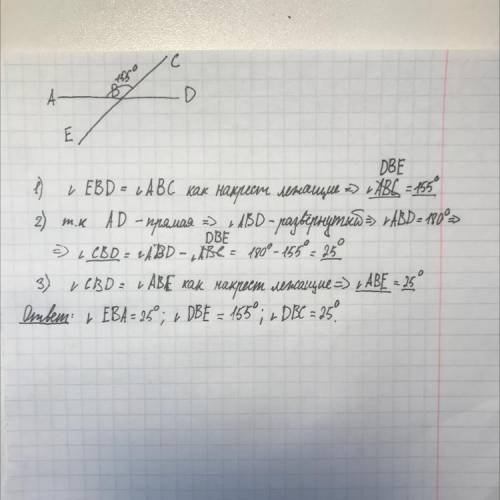 C
155°
A B D
E
DBE
1) ∠ EBD = ∠ABC как накрест лежащие => ∠ABC = 155°
2) т.к AD - прямая => ∠ABD - развёрнутый => ∠ABD = 180° =>
DBE
=> ∠ CBD = ∠ABD - ∠ABC = 180° - 155° = 25°
3) ∠ CBD = ∠ABE как накрест лежащие => ∠ABE = 25°
Ответ: ∠ EBA = 25°; ∠ DBE = 155°; ∠ DBC = 25°.